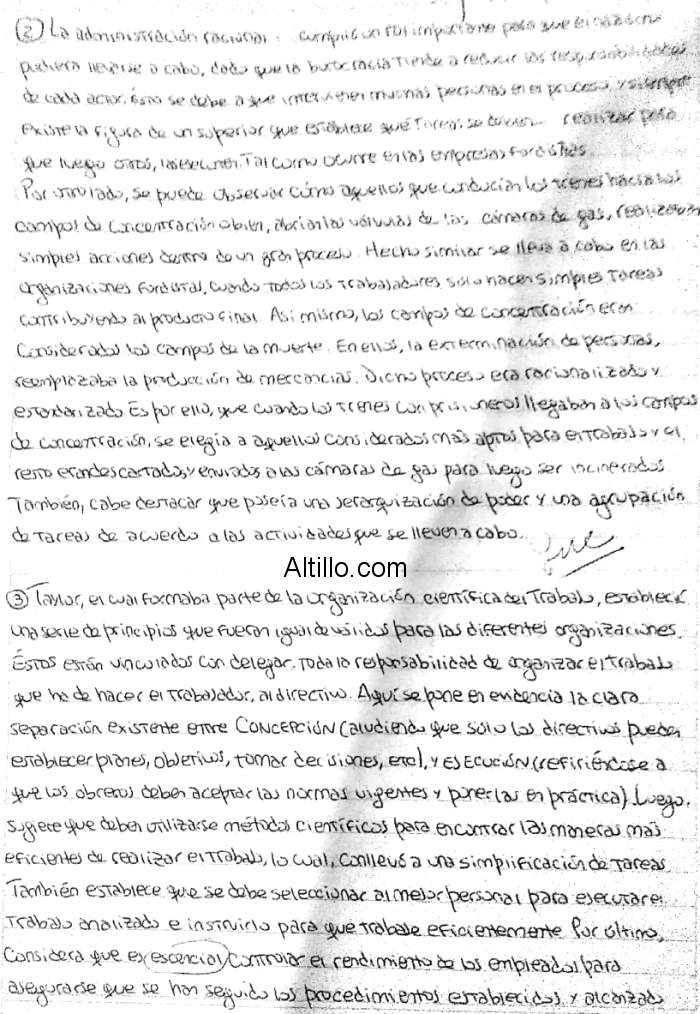 ② La administración racional: cumplió un rol importante para que el nazismo
pudiera llevarse a cabo, dado que la burocracia tiende a reducir las responsabilidades
de cada actor. Ésto se debe a que intervienen muchas personas en el proceso, y siempre
existe la figura de un superior que establece qué tareas se deben realizar para
que luego otros, las ejecuten. Tal como ocurre en las empresas fordistas.
Por otro lado, se puede observar cómo aquellos que conducían los trenes hacia los
campos de concentración o bien, abrían las válvulas de las cámaras de gas, realizaban
simples acciones dentro de un gran proceso. Hecho similar se lleva a cabo en las
organizaciones fordistas, cuando todos los trabajadores solo hacen simples tareas
contribuyendo al producto final. Asi mismo, los campos de concentración eran
considerados los campos de la muerte. En ellos, la exterminación de personas,
reemplazaba la producción de mercancías. Dicho proceso era racionalizado y
estandarizado Es por ello, que cuando los trenes con prisioneros llegaban a los campos
de concentración, se elegía a aquellos considerados más aptos para el trabajo y el
resto eran descartados, y enviados a las cámaras de gas para luego ser incinerados
También, cabe destacar que poseía una jerarquización de poder y una agrupación
de tareas de acuerdo a las actividades que se lleven a cabo.
Altillo.com
③ Taylor, el cual formaba parte de la organización científica del trabajo, establece
una serie de principios que fueran igual de válidos para las diferentes organizaciones.
Éstos están vinculados con delegar, toda la responsabilidad de organizar el trabajo
que ha de hacer el trabajador, al directivo. Aquí se pone en evidencia la clara
separación existente entre CONCEPCIÓN (aludiendo que sólo los directivos pueden
establecer planes, objetivos, tomar decisiones, etc), y EJECUCIÓN (refiriéndose a
que los obreros deben aceptar las normas vigentes y ponerlas en práctica). Luego,
sugiere que deben utilizarse métodos científicos para encontrar las maneras más
eficientes de realizar el trabajo, lo cual, conllevó a una simplificación de tareas
También establece que se debe seleccionar al mejor personal para ejecutar el
trabajo analizado e instruirlo para que trabaje eficientemente Por último,
considera que es escencial controlar el rendimiento de los empleados para
asegurarse que se han seguido los procedimientos establecidos y alcanzado